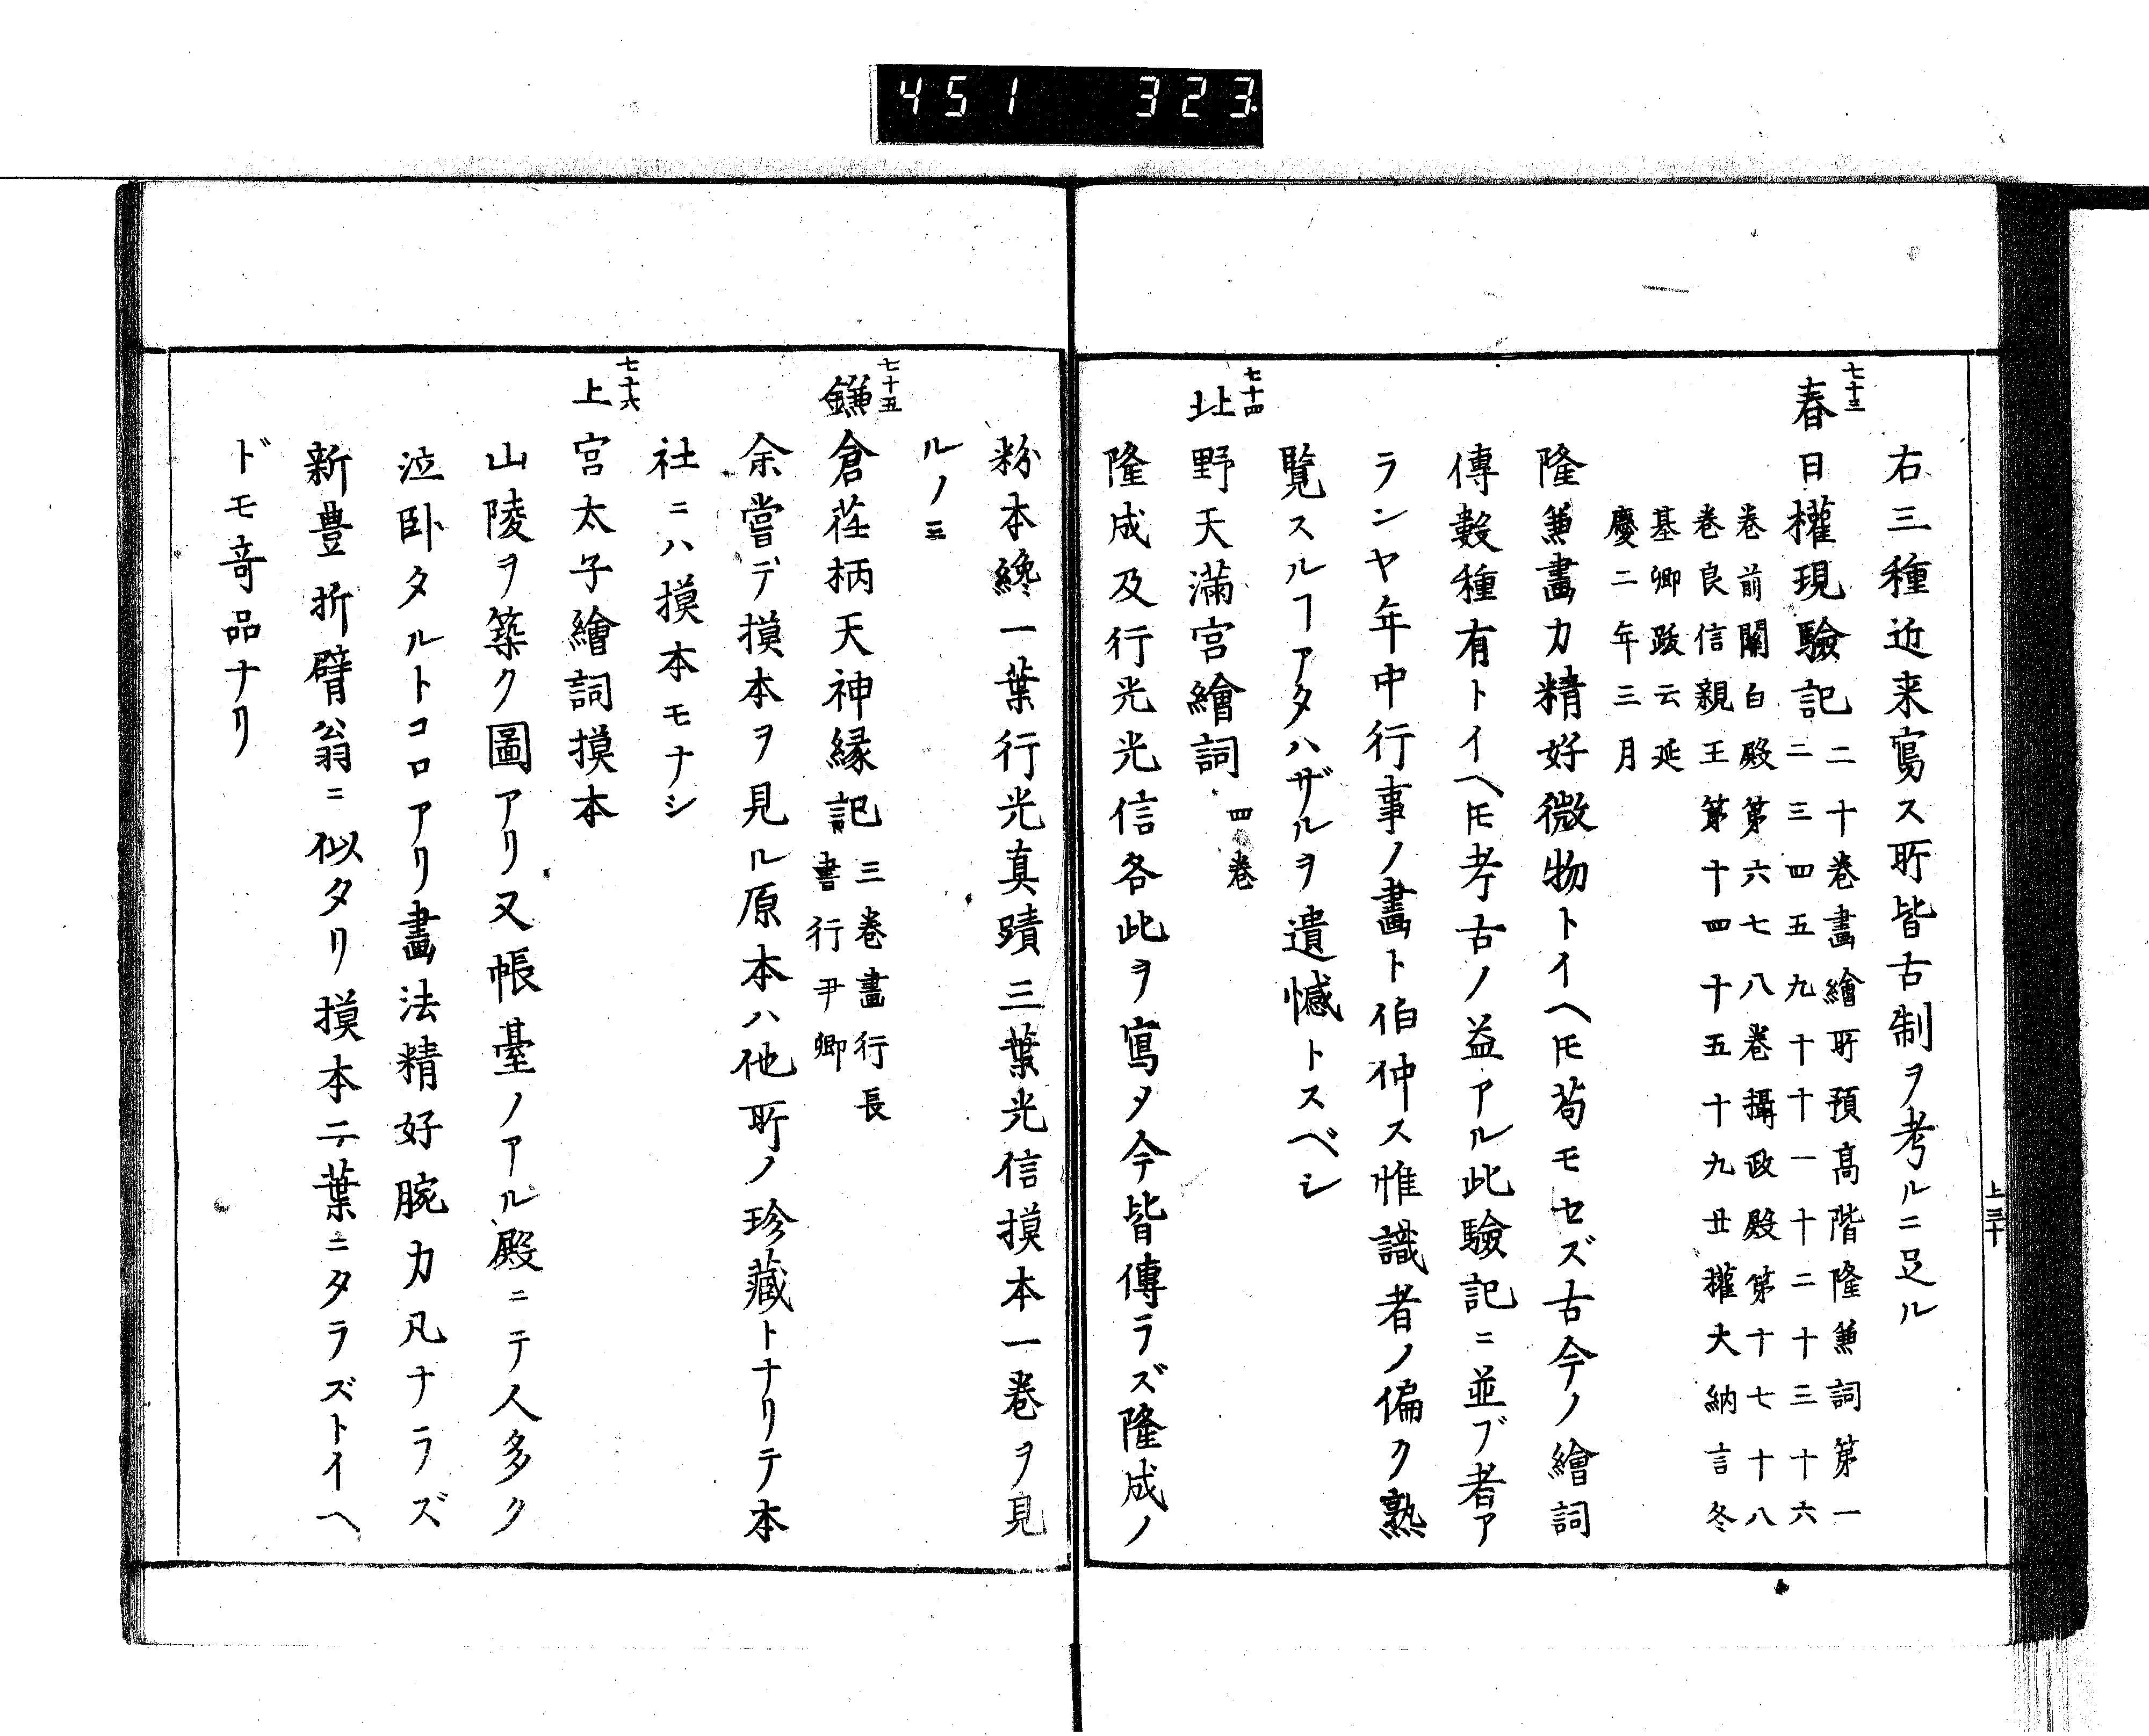 451 323
上三十
右三種近来寫ス所皆古制ヲ考ルニ足ル
七十三
春日權現驗記
二十卷畫繪所預髙階隆兼詞第一
二三四五九十十一十二十三十六
卷前關白殿第六七八卷攝政殿第十七十八
卷良信親王第十四十五十九廿權大納言冬
基卿跋云延
慶二年三月
隆兼畫力精好微物トイヘ𪜈苟モセズ古今ノ繪詞
傳數種有トイヘ𪜈考古ノ益アル此驗記ニ並ブ者ア
ランヤ年中行事ノ畫ト伯仲ス惟識者ノ偏ク熟
覽スルヿアタハザルヲ遺憾トスベシ
七十四
北野天滿宮繪詞 四卷
隆成及行光光信各此ヲ寫メ今皆傳ラズ隆成ノ
粉本纔一葉行光真蹟三葉光信摸本一卷ヲ見
ルノミ
七十五
鎌倉荏柄天神縁記
三卷畫行長
書行尹卿
余嘗デ摸本ヲ見ル原本ハ他所ノ珍藏トナリテ本
社ニハ摸本モナシ
七十六
上宮太子繪詞摸本
山陵ヲ築ク圖アリ又帳臺ノアル殿ニテ人多ク
泣卧タルトコロアリ畫法精好腕力凡ナラズ
新豊折臂翁ニ似タリ摸本二葉ニタラズトイヘ
ドモ竒品ナリ